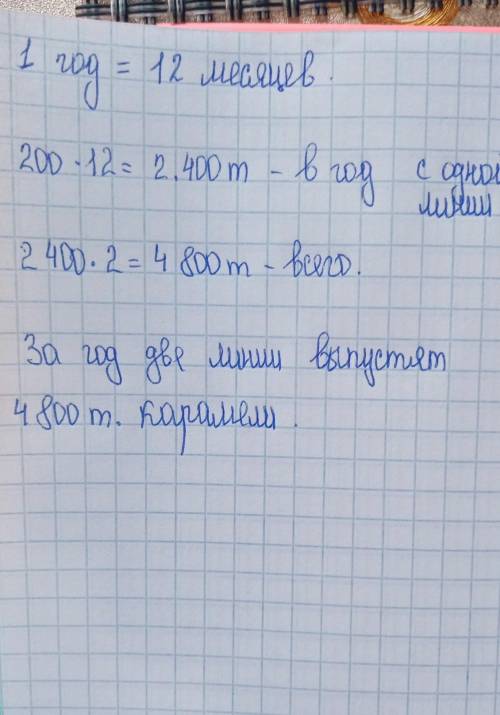 1 год = 12 месяцев.
200 · 12 = 2.400 т - в год с одной
линии
2 400 · 2 = 4 800 т - всего.
За год две линии выпустят
4 800 т. карамели.